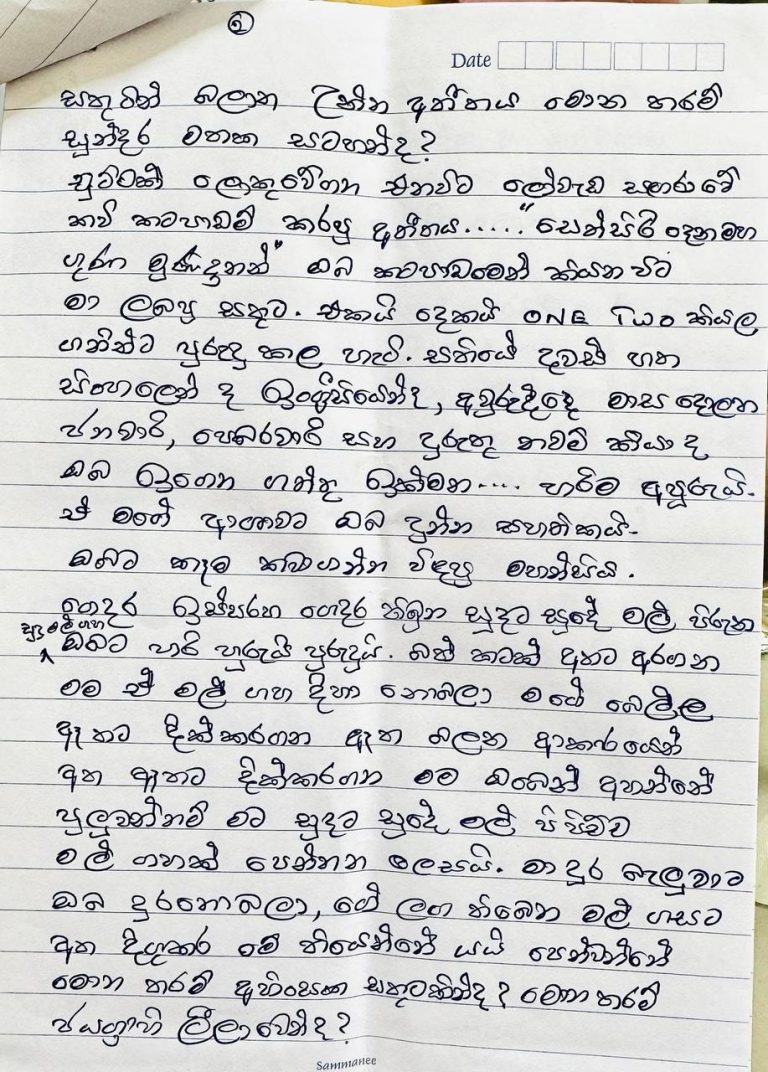 ②
Date
සතුටින් බලාන උන්න අතීතය මොන තරම්
සුන්දර මතක සටහන්ද?
චුට්ටක් ලොකුවේගන එනවිට ලෝවැඩ සඟරාවේ
කවි කටපාඩම් කරපු අතීතය..... "සෙත්සිරි දෙන මහ
ගුණ මුණිඳුනන්" ඔබ කටපාඩමෙන් කියන විට
මා ලබපු සතුට. එකයි දෙකයි ONE TWO කියල
ගනින්ට පුරුදු කල හැටි. සතියේ දවස් හත
සිංහලෙන් ද ඉංග්‍රීසියෙන්ද, අවුරුද්දෙ මාස දොලහ
ජනවාරි, පෙබරවාරි සහ දුරුතු නවම් කියා ද
ඔබ ඉගෙන ගත්තු ඉක්මන.... හරිම අපූරුයි.
ඒ මගේ ආශාවට ඔබ දුන්න සහතිකයි.
ඔබට කෑම කවාගන්න විඳපු මහන්සිය.
ගෙදර ඉස්සරහ ගෙදර තිබුන සුදට සුදේ මල් පිරුන
සුදු මල් ගහ
ඔබට හරි හුරුයි පුරුදුයි. බත් කටක් අතට අරගන
මම ඒ මල් ගහ දිහා නොබලා මගේ බෙල්ල
ඈතට දික්කරගන ඈත බලන ආකාරයෙන්
අත ඈතට දික්කරගන මම ඔබෙන් අහන්නේ
පුලුවන්නම් මට සුදට සුදේ මල් පිපිච්ච
මල් ගහක් පෙන්නන ලෙසයි. මා දුර බැලුවාට
ඔබ දුරනොබලා, ගේ ලඟ තිබෙන මල් ගසට
අත දිගුකර මේ තියෙන්නේ යයි පෙන්වන්නේ
මොන තරම් අහිංසක සතුටකින්ද? මොන තරම්
ජයග්‍රාහී ලීලාවෙන්ද?
Sammanee